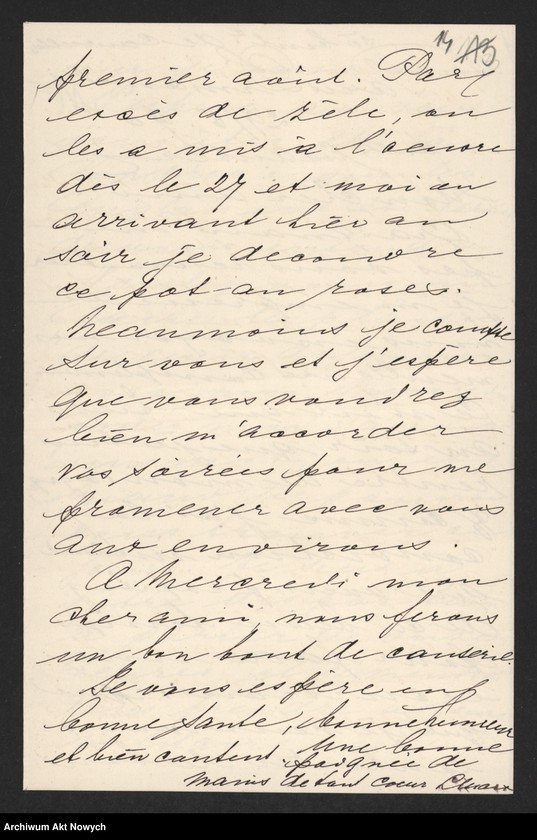 14 A5
premier août. Par
excès de zèle, on
les a mis à l'oeuvre
dès le 27 et moi en
arrivant hier au
soir je decouvre
ce pot-au roses.
Neanmoins je compte
sur vous et j'espère
que vous voudrez
bien m'accorder
vos soirées pour me
promener avec vous
aux environs.
A Mercredi mon
cher ami, nous ferons
un bon bout de causerie.
Je vous espère en
bonne sante, bonne humeur
et bien content. Une bonne
poignée de
mains de tout coeur
Archiwum Akt Nowych